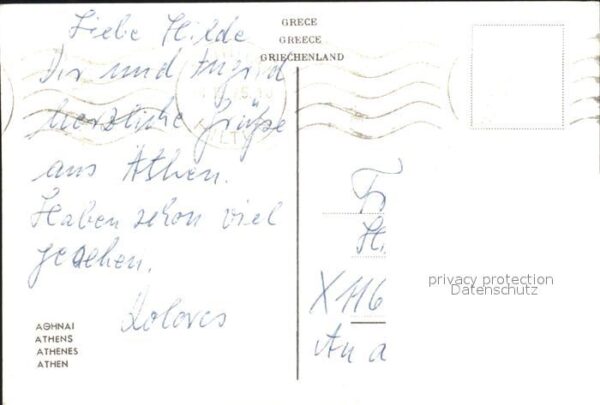 GRECE
GREECE
GRIECHENLAND
Liebe Hilde
Dir und Ingrid
herzliche Grüße
aus Athen.
Haben schon viel
gesehen.
Dolores
ΑΘΗΝΑΙ
ATHENS
ATHENES
ATHEN
Fr
X 116
An a
privacy protection
Datenschutz